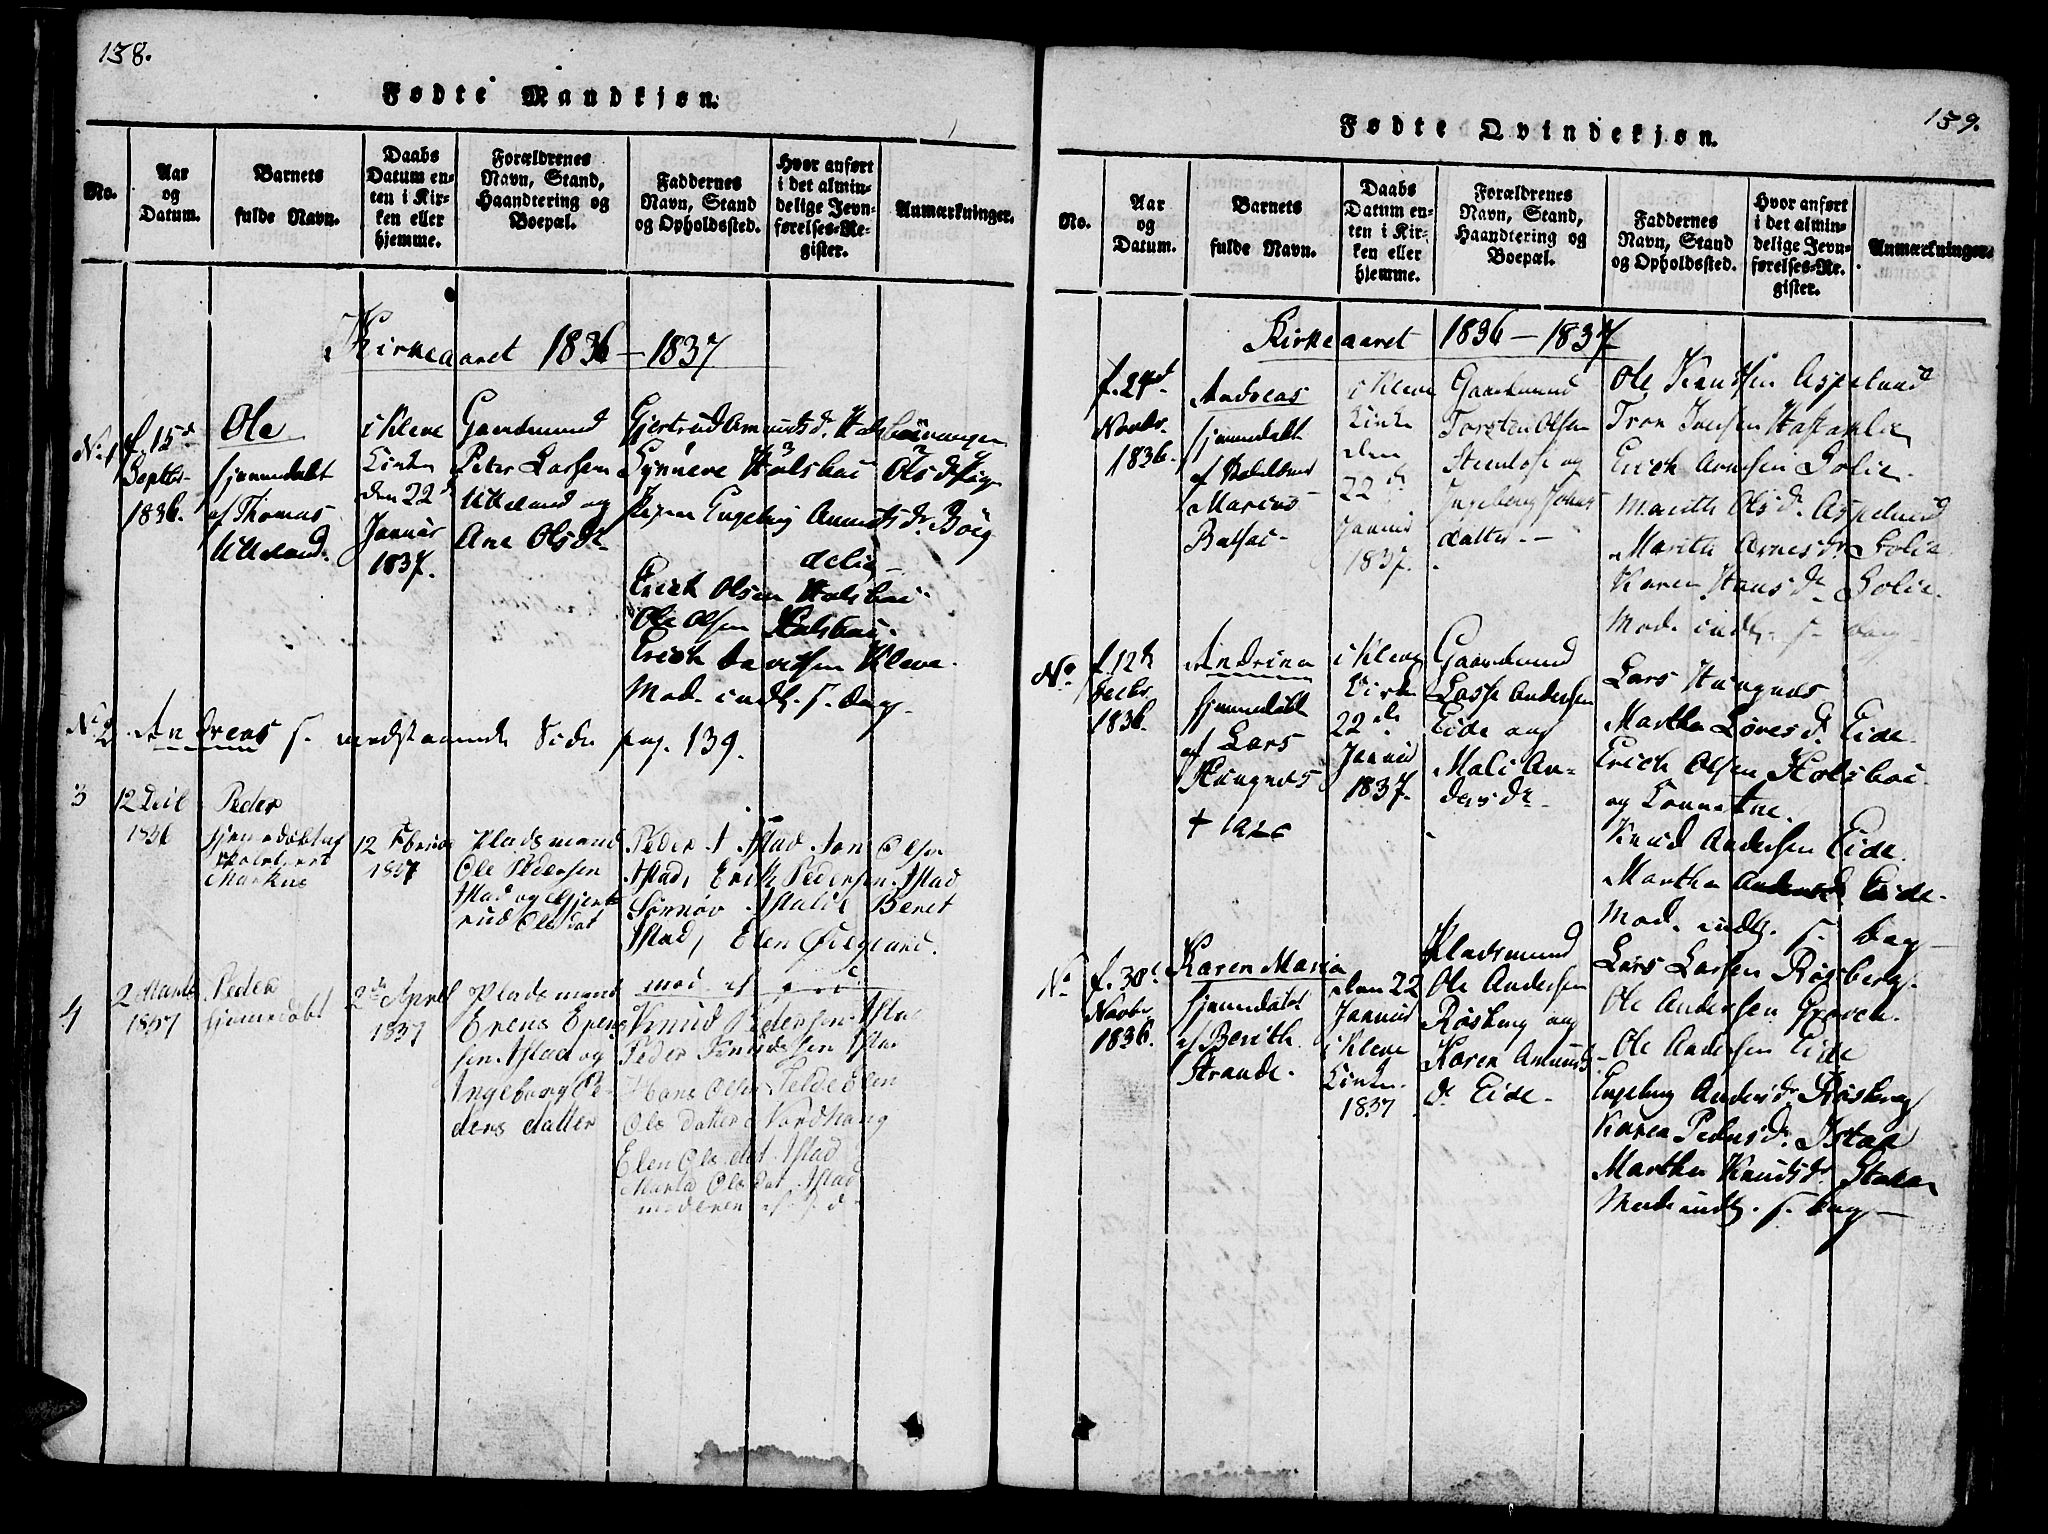 138.
Fødte Mandkjøn.
No.
Aar
og
Datum.
Barnets
fulde Navn.
Daabs
Datum en-
ten i Kir-
ken eller
hjemme.
Forældrenes
Navn, Stand,
Haandtering og
Boepæl.
Faddernes
Navn, Stand
og Opholdssted.
Hvor anført
i det almin-
delige Jevn-
førelses-Re-
gister.
Anmærkninger.
Kirkeaaret 1836 – 1837
No. 1
f. 15d
Septbr
1836.
Ole
hjemmedøbt
af Thomas
i Kleve
Kirke
den 22d
Januar
1837.
Gaardmand
Peter Larsen
og
Ane Olsdr
Gjertrud Amundsdr.
Synneve Halsboe
Pigen Engeborg Amundsdr. Boeg
Erich Olsen Halsboe
Ole Olsen Halsboe.
Erich Davidsen Kleve.
Mod. indl. s. dag
No. 2
Andreas s. modstaaende Side pag. 139.
3
12
1836
Peder
hjemmedøbt af
Markus
12 Febru
1837
Pladsmand
Ole Pedersen
Istad og Gjert
rud Olsdat
Peder Istad Jon Olsen
Istad, Erik Pedersen Istad
Istad Beret
Istad, Elen Øregaard.
4
2 Marts
1837
Peder
hjemmedøbt
2de April
1837
Pladsmand
Evens Evens
sen Istad og
Ingeborg Pe-
ders datter
mod
Knud Pedersen Istad
Peder Knudsen Istad
Hans Olsen
Ols Datter Nordhaug
Elen Olsdat Istad
Marta Olsdat Istad
moderen
139.
Fødte Qvindekjøn.
No.
Aar
og
Datum.
Barnets
fulde Navn.
Daabs
Datum en-
ten i Kir-
ken eller
hjemme.
Forældrenes
Navn, Stand,
Haandtering og
Boepæl.
Faddernes
Navn, Stand
og Opholdssted.
Hvor anført
i det almin-
delige Jevn-
førelses-Re-
gister.
Anmærkninger.
Kirkeaaret 1836 – 1837
f. 24d
Novbr.
1836.
Andreas
hjemmedøbt
af
i Kleve
Kirke
den
22d
Januar
1837.
Gaardmand
Torsten Olsen
og
Ingeborg Johns
datter
Ole Knudsen Aspelund
Tron Iversen
Erich Arnesen Solie.
Marith Olsdr. Aspelund
Marith Arnesdr. Solie
Karen Hansdr Solie.
Mod. indl. s. dag
No
f. 12te
Decbr.
1836
Andrine
hjemmedøbt
af Lars
Haugnæs
i Kleve
Kirke
22de
Januar
1837.
Gaardmand
Lasse Andersen
Eide og
Mali An-
dersdr.
Lars Haugnæs
Martha Larsdr. Eide.
Erich Olsen Halsboe
og Konnetne.
Knud Andersen Eide.
Martha Andersdr Eide.
Mod. indl. s. dag
No
f. 30d
Novbr
1836.
Karen Maria
hjemmedøbt
af Berith
Strande.
den 22
Januar
i Kleve
Kirke.
1837
Pladsmand
Ole Andersen
Røsberg og
Karen Amunds
dr. Eide.
Lars Larsen Røsberg.
Ole Andersen Groven.
Ole Andersen Eide
Engeborg Andersdr. Røsberg
Karen Pedersdr. Istad
Martha Knudsdr.
Mod. indl. s. dag